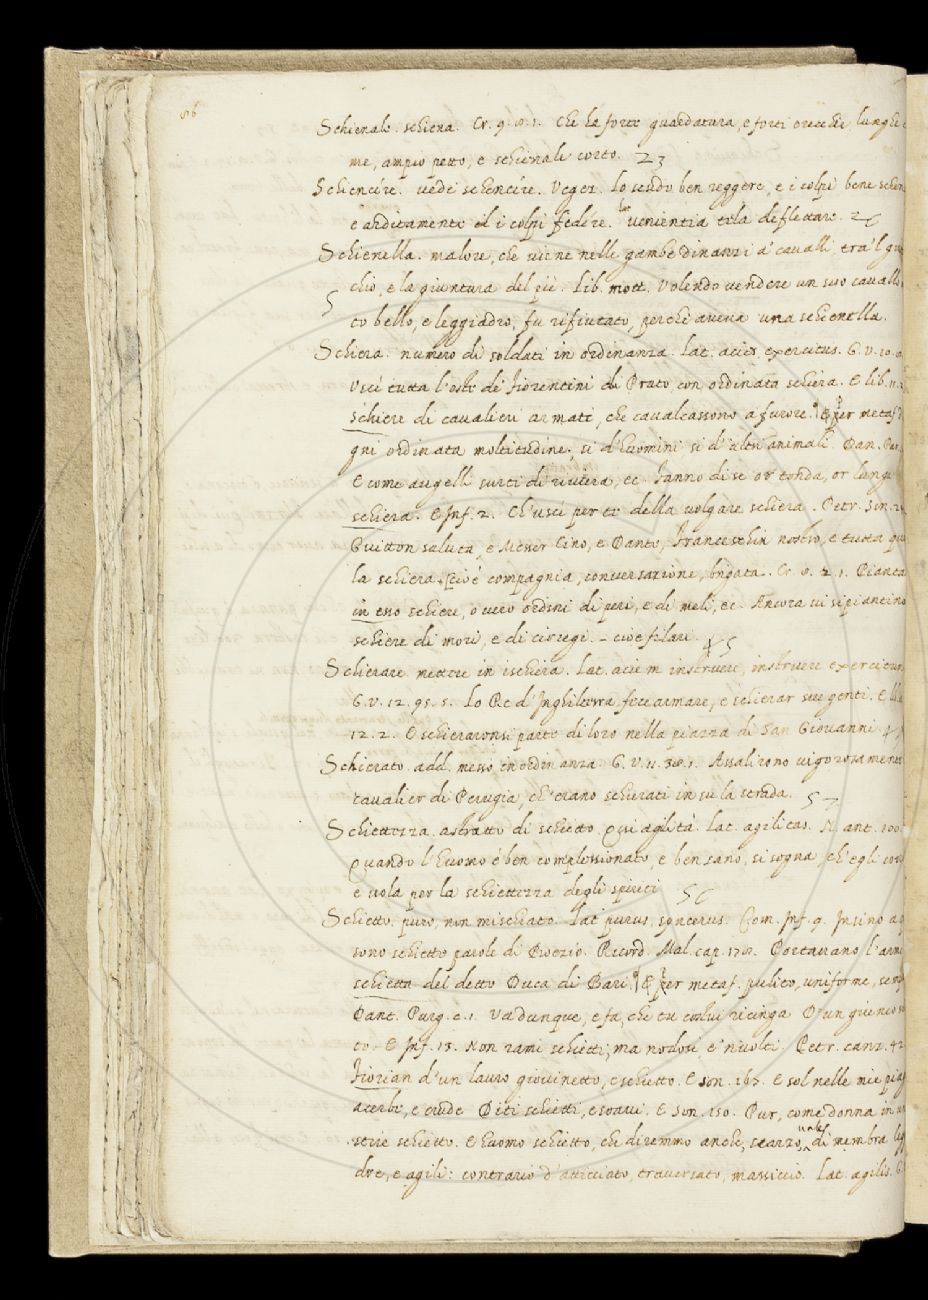 Schienale. schiena. Cr. 9. 8. 1. Che ha forte guardatura, e forti orecchie, lunghe
me, ampio petto, e schienale corto. 23
Schiencíre. vedi schencíre. Veget. Lo scudo ben reggere, e i colpi bene schen
e arditamente el i colpi fedire. venientia tela deflectare.
Schienella. malore, che viene nelle gambe dinanzi a' cavalli tra 'l gin
chio, e la giuntura del piè. Lib. mott. Volendo vendere un suo cavallo
to bello, e leggiadro, fu rifiutato, perchè aveva una schienella.
Schiera. numero di soldati in ordinanza. Lat. acies, exercitus. G. V. 10.
Uscì tutta l'oste de' Fiorentini di Prato con ordinata schiera. E lib. 11.
schiere di cavalieri armati, che cavalcassono a furore. E per metaf.
qui ordinata moltitudine, sì d'huomini sì d'altri animali. Dan. Par.
E come augelli surti di riviera, ec. Fanno di se or tonda, or lunga
schiera. E Inf. 2. Ch'uscì per te della volgare schiera. Petr. Son.
Guitton saluta, e Messer Cino, e Dante, Franceschin nostro, e tutta que
la schiera. cioè compagnia, conversazione, brigata. Cr. 8. 2. 1. Pianta
in esso schiere, o vero ordini di peri, e di meli, ec. Ancora vi si piantino
schiere di mori, e di ciregi. - cioè filari. 45
Schierare mettere in ischiera. Lat. aciem instruere, instruere exercitum.
G. V. 12. 95. 5. Lo Re d'Inghilterra fece armare, e schierar sue genti. E
12. 2. E schieraronsi parte di loro nella piazza di San Giovanni.
Schierato. add. messo in ordinanza. G. V. 11. 38. 1. Assalirono vigorosamente
cavalier di Perugia, ch'erano schierati in su la strada.
Schiettezza. astratto di schietto. Qui agilità. Lat. agilitas. N. ant. 100.
Quando l'huomo è ben complessionato, e ben sano, si sogna, ch'egli corr
e vola per la schiettezza degli spiriti
Schietto. puro, non mischiato. Lat. purus, syncerus. Com. Inf. 9. Insino a q
sono schiette parole di Boezio. Ricord. Mal. cap. 178. Portavano l'arme
schietta del detto Duca di Bari. E per metaf. pulito, uniforme, semp
Dant. Purg. c. 1. Va dunque, e fa, che tu costui ricinga D'un giunco
to. E Inf. 13. Non rami schietti, ma nodosi, e 'nvolti. Petr. canz. 42
Fiorian d'un lauro giovinetto, e schietto. E son. 167. E sol nelle mie pia
acerbi, e crude Diti schietti, e soavi. E son. 150. Pur, come donna in un
stire schietto. E huomo schietto, che diremmo anche, scarzo, di membra leg
dre, e agili: contrario d'atticciato, traversato, massiccio. Lat. agilis.